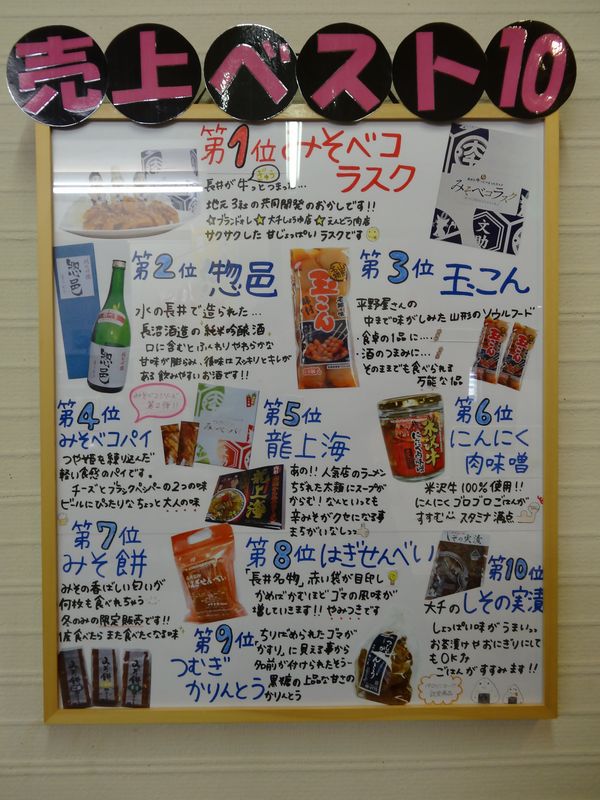 売上ベスト10
第1位 みそベコ
ラスク
長井が牛っとつまった…
ぎゅう
地元3社の共同開発のおかしです!!
サクサクした甘じょっぱいラスクです
みそベコラスク
文助
第2位 惣邑
水の長井で造られた…
長沼酒造の純米吟醸酒。
口に含むとふんわりやわらかな
甘味が膨らみ、後味はスッキリとキレが
ある飲みやすいお酒です!!
惣邑
玉こん
第3位 玉こん
平野屋さんの
中まで味がしみた山形のソウルフード
・食卓の1品に…
・酒のつまみに…
そのままでも食べられる
万能な1品
第4位
みそベコパイ
つや姫を練り込んだ
軽い食感のパイです。
チーズとブラックペッパーの2つの味
ビールにぴったりなちょっと大人の味
第5位
龍上海
あの!!人気店のラーメン
ちぢれた太麺にスープが
からむ!なんといっても
辛みそがクセになる事
まちがいなしっっ
龍上海
米沢牛
第6位
にんにく
肉味噌
米沢牛100%使用!!
にんにくゴロゴロごはんが
すすむ スタミナ満点
第7位
みそ餅
みその香ばしい匂いが
何枚も食べれちゃう
冬のみの限定販売です!!
1度食べたらまた食べたくなる味
みそ餅
第8位 はぎせんべい
「長井名物」赤い袋が目印!
かめばかむほどゴマの風味が
増していきます!!やみつきです
はぎせんべい
第9位
つむぎ
かりんとう
ちりばめられたゴマが
「かすり」に見える事から
名前が付けられたそう…
黒糖の上品な甘さの
かりんとう
第10位
大チのしその実漬
しょっぱい味がうまいっっ
お茶漬けやおにぎりにして
もOK
ごはんがすすみます!!
しその実漬